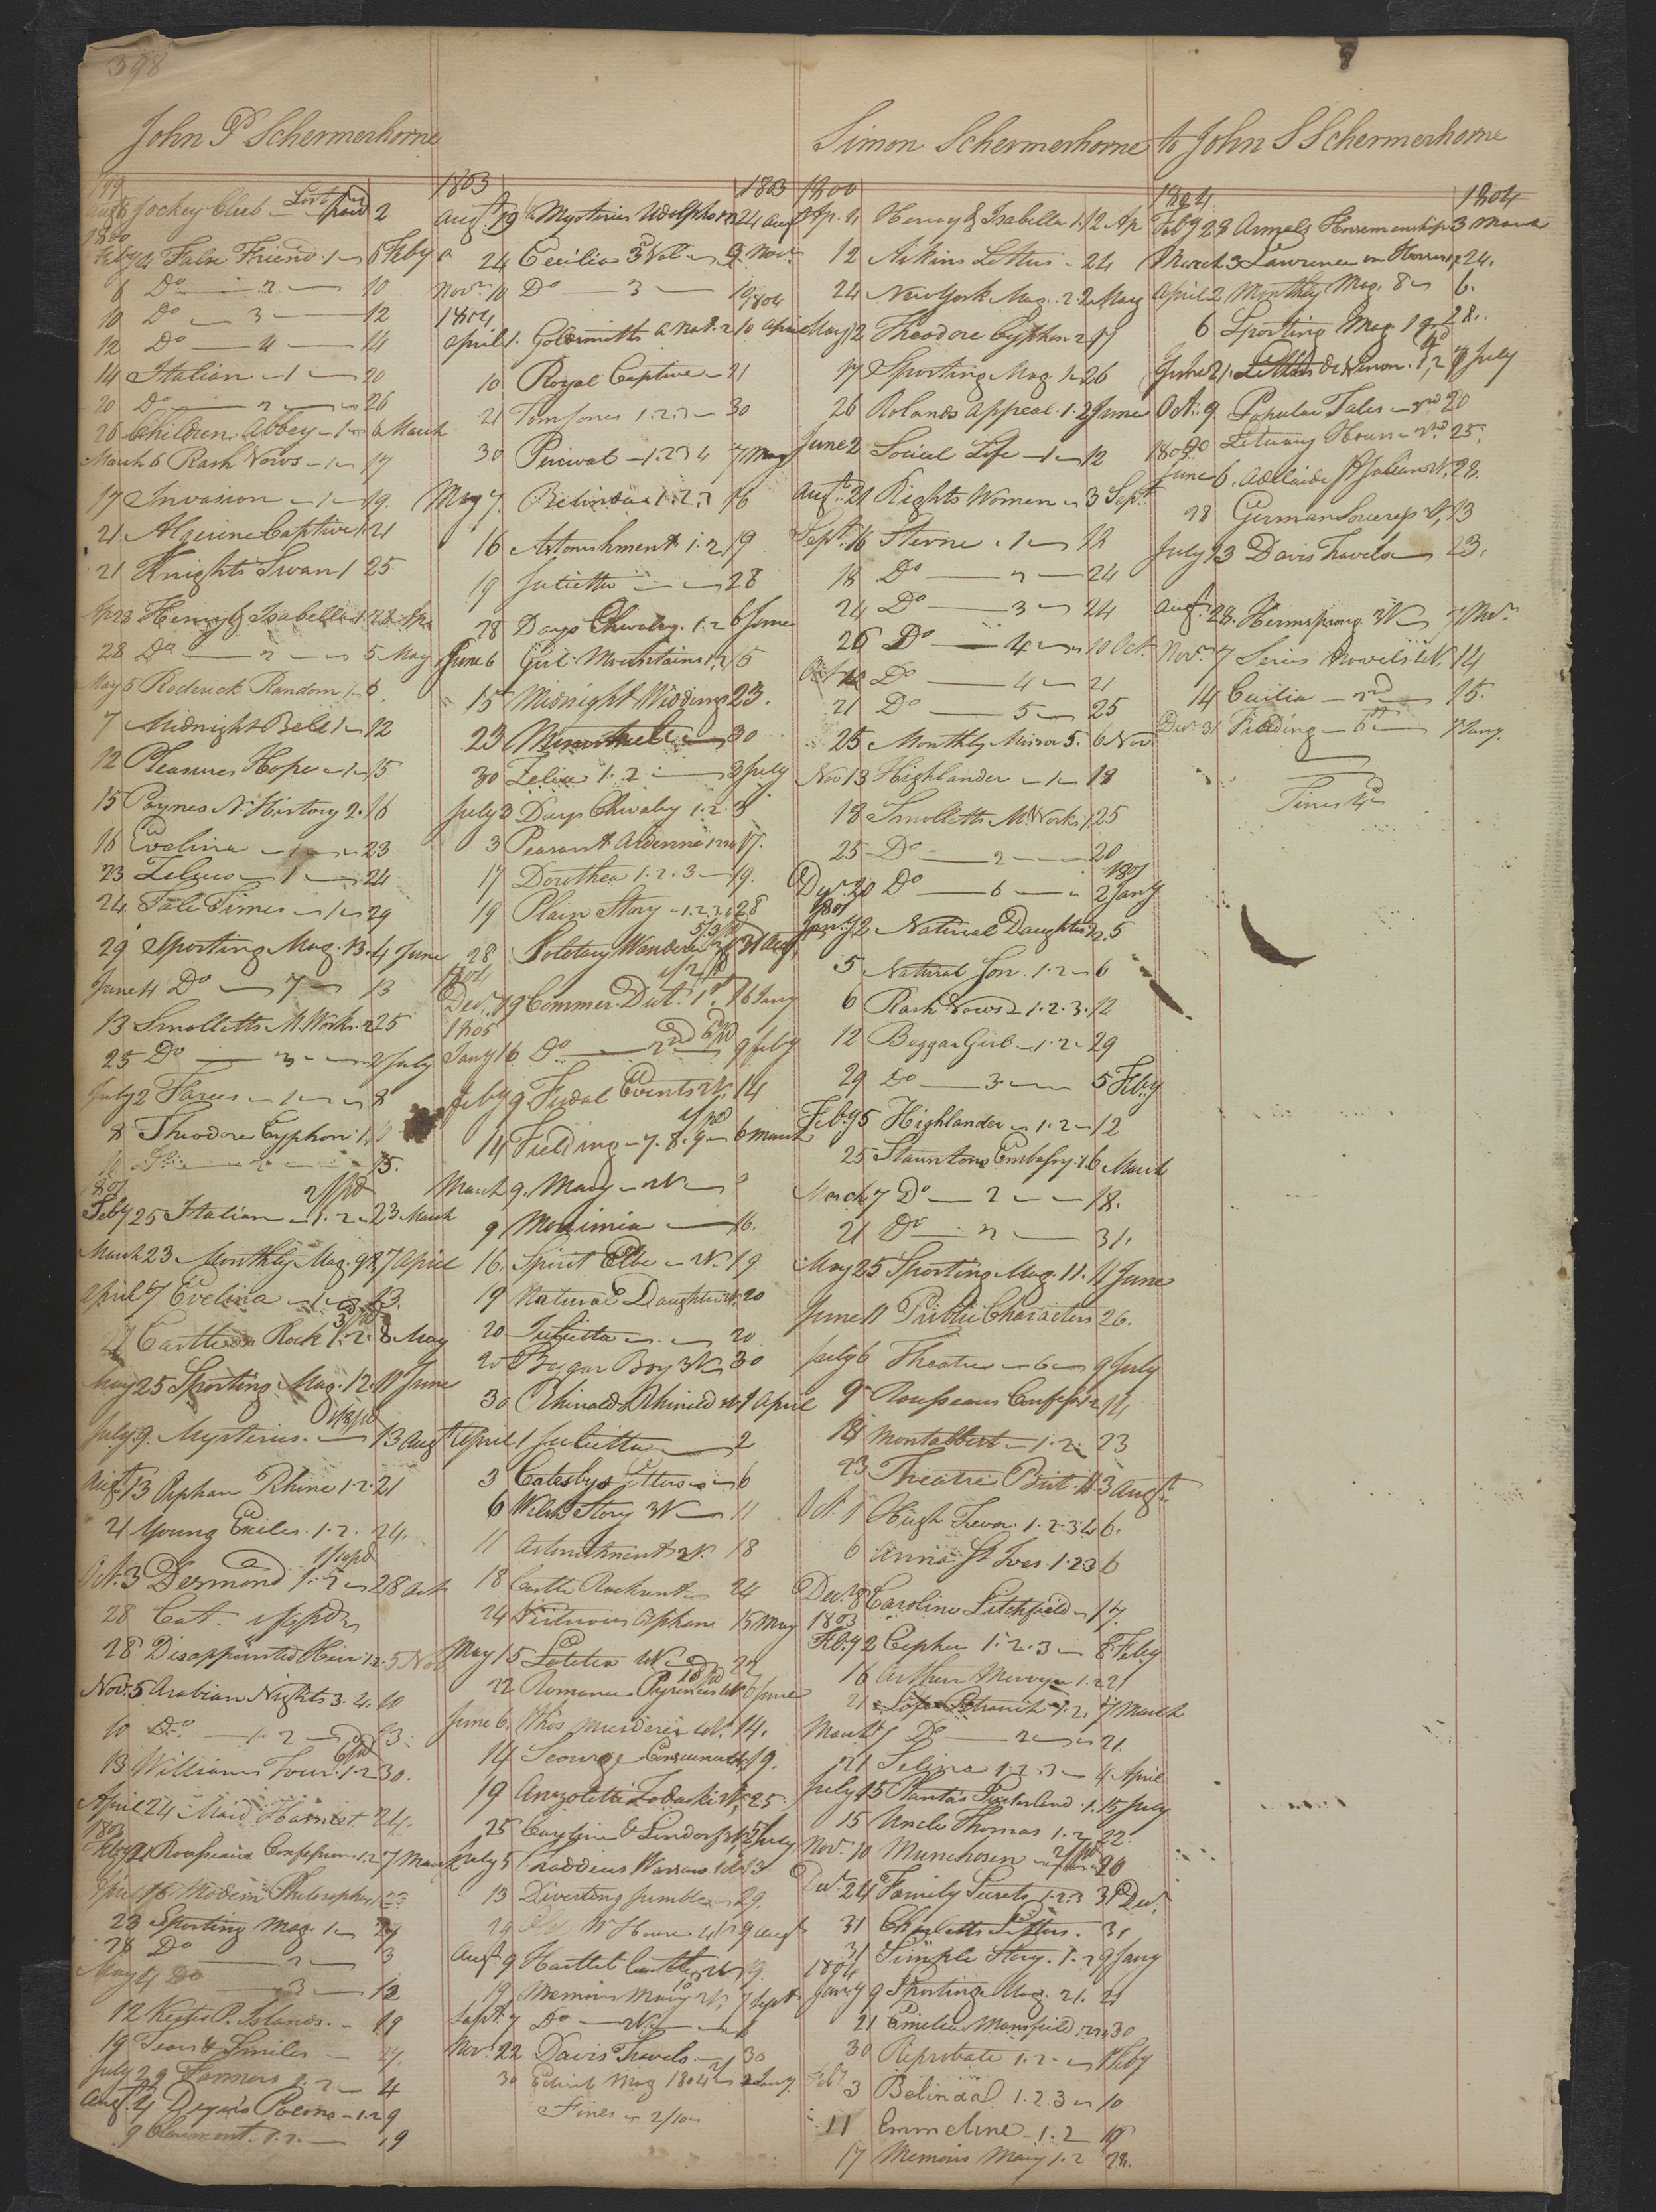 598
John P Schermerhorne
1799
Augt 6 Jockey Club Lost paid 2
1800
Feby 4 False Friend 1 6 Feby
6 Do 2 10
10 Do 3 12
12 Do 4 14
14 Italian 1 20
20 Do 2 26
26 Children Abbey 1 6 March
March 6 Rash Vows 1 17
17 Invasion 1 19.
21 Algerine Captive 1 21
21 Knights Swan 1 25
Henry & Isabella 1 28 Apr
28 Do 2 5 May
May 5 Roderick Random 1 6
7 Midnight Bell 1 12
12 Pleasures Hope 1 15
15 Paynes N. History 2. 16
16 Evelina 1 23
23 Zeluco 1 24
24 Tale Times 1 29
29 Sporting Mag. 13. 4 June
June 4 Do 7 13
13 Smolletts M. Works. 2 25
25 Do 3 2 July
July 2 Farces 1 8
8 Theodore Cyphon 1
15.
1801
Feby 25 Italian 1. 2 23 March
March 23 Monthly Mag. 7 April
April 7 Evelina 1 13.
Castle Rock 1. 2. 8 May
May 25 Sporting Mag. 12. 11 June
July 9. Mysteries 13 Augt
Augt 13 Orphan Rhine 1. 2. 21
21 Young Exiles. 1. 2. 24.
Oct. 3 Desmond 1. 2 28 Oct
28 Cat.
28 Disappointed Heir 1 2 5 Nov
Nov. 5 Arabian Nights 3. 4. 10
10 Do 1. 2 13
13 Williams Tour. 1. 2 30.
April 24 Maid Hamlet 24.
1803
Feby 21 Rousseaus Confession 1. 2 7 March
April 16 Modern Philosophers 23
23 Sporting Mag. 1 27
28 Do 2 3
May 4 Do 3 12
12 Keates P. Islands. 19
19 Tears & Smiles 27.
July 29 Farmers 1. 2 4
Augt. 4 Dyer's Poems 1. 2 9
9 Clermont. 1. 2. 19
1803 1803
Augt. 19 Mysteries Udolpho 24 Augt
24 Cecilia 3d Vol 9 Nov.
Nov. 10 Do 3 19
1804 1804
April 1. Goldsmiths a Nat. 2 10 April
10 Royal Captive 21
21 Tom Jones 1. 2. 3 30
30 Percival 1. 2 3 4 7 May
May 7. Belinda 1. 2. 3 16
16 Astonishment 1. 2 19
19 Julietta 28
28 Days Chivalry. 1. 2 6 June
June 6 Girl Mountains 1. 2 15
15 Midnight Wedding 23.
23 30
30 Zelica 1. 2 3 July
July 3 Days Chivalry 1. 2. 3
3 Peasant Ardenne 17.
17 Dorothea 1. 2. 3 19.
19 Plain Story 1. 2. 3. 4 28
28 Solotary Wanderer 31 Augt
1804
Decr. 19 Commer. Dict. 1st. 16 Jany
1805
Jany 16 Do 2nd 9 Feby
Feby 9. Fudal Events 14
14 Fielding 7. 8. 9 6 March
March 9. Mary 2V 9
9 Monimia 16.
16. Spirit Elbe 2V. 19.
19 Natural Daughter 20
20 Julietta 20
20 Begar Boy 3V 30
30 Rhinaldo Rhinildo 1 April
April 1 Julietta 2
3 Catesbys Letters 6
6 Welsh Story 3V 11
11 Astonishment 2V. 18
18 Castle Rackrent 24
24 Virtuous Orphan 15 May
May 15 Letitia 22
22 Romance Pyrenees 6 June
June 6. Who's Murderer 4V. 14.
14 Scourge Conscience 19.
19 Anzoletta Zodaski 25
25 Caroline & Lindorf 5 July
July 5 Thaddeus Warsaw 13
13 Diverting Jumble 29.
29 Old Ml House 4V 9 Augt
Augt 9 19.
19 Memoirs Mary 2V. 7 Sept
Sept. 7 Do 2V. 8
Nov. 22 Davis Travels 30
30 Edinb Mag 1804 Jany
Fines 2/10
Simon Schermerhorne to John S Schermerhorne
1800
Ap. 4 Henry & Isabella 1. 12 Ap
12 Aikins Letters 24
24 New York Mag. 2 2 May
May 2 Theodore Cyphon 2 17
17 Sporting Mag. 1 26
26 Rolands Appeal. 1. 2 June
June 2 Social Life 1 12
Augt. 21 Rights Women 3 Sept.
Sept. 16 Sterne 1 18
18 Do 2 24
24 Do 3 24
26 Do 4 10 Oct.
Oct 10 Do 4 21
21 Do 5 25
25 Monthly Mirror 5. 6 Nov.
Nov 13 Highlander 1 18
18 Smolletts M. Works 1 25
25 Do 2 20
1801
Decr. 20 Do 6 2 Jany
1801
Jany 2 Natural Daughter 1. 2. 5
5 Natural Son. 1. 2 6
6 Rash Vows 1. 2. 3. 12
12 Beggar Girl 1. 2 29
29 Do 3 5 Feby
Feby 5 Highlander 1. 2 12
25 Stauntons Embassy. 1. 6 March
March 7 Do 2 18.
21 Do 2 31.
May 25 Sporting Mag. 11. 11 June
June 11 Public Characters 26.
July 6 Theatre 6 9 July
9 Rousseaus Confession 14
14 Montalbert 1. 2. 23
23 Theatre Brit. 3 Augt
Oct. 1 Hugh Trevor. 1. 2. 3 4 6.
6 Anna St Ives. 1. 2 3 6
Decr. 8 Caroline Litchfield 17.
1803
Feby 2 Cepher 1. 2. 3 8 Feby
16 Arthur Mervyn 1. 2 21
21 Life Petrarch 1. 2. 7 March
March 7 Do 2 21.
21 Selina 1. 2. 3 4 April
July 15 Plantas Switzerland. 1. 15 July
15 Uncle Thomas 1. 2 22.
Nov. 10 Munchosen 20
Decr. 24 Family Secrets 1. 2. 3 31 Decr.
31 Charlotte Letters. 31
31 Simple Story. 1. 2 9 Jany
1804
Jany 9 Sporting Mag. 21. 21
21 Emelia Mansfield 30
30 Reprobate 1. 2. 1 Feby
Feby 3 Belinda 1. 2. 3 10
11 Emmeline 1. 2 17
17 Memoirs Mary 1. 2 28.
1804 1804
Feby 28 Annuals Horsemanship 3 March
March 3 Lawrence on Horses 1. 2 24.
April 2 Monthly Mag. 8 6.
6 Sporting Mag. 19 28.
June 21. Letters De L'Enon. 1. 2 7 July
Oct. 9 Popular Tales 3rd 20
20 Literary Hours 2nd. 25.
1805
June 6. Adelaide St Julian 28.
28 German Sorceress 13
July 13 Davis Travels 23.
Augt. 28. Hermsprong 3V 7 Nov.
Nov. 7 Series Novels 14
14 Cecilia 2nd 15.
Decr. 31 Fielding 6th 7 Jany.
Fines